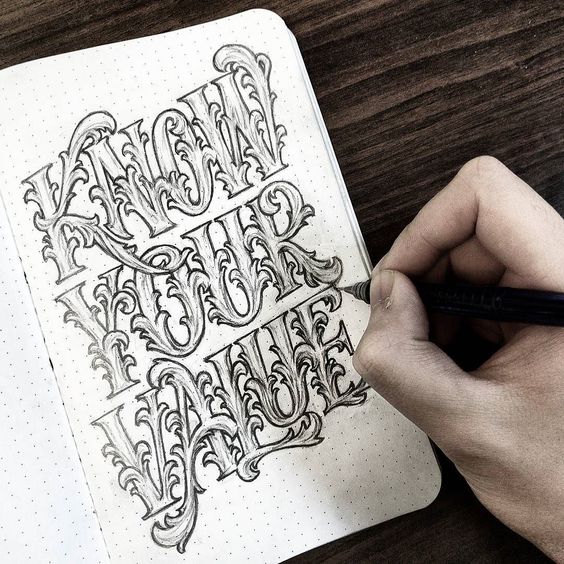 KNOW
YOUR
VALUE